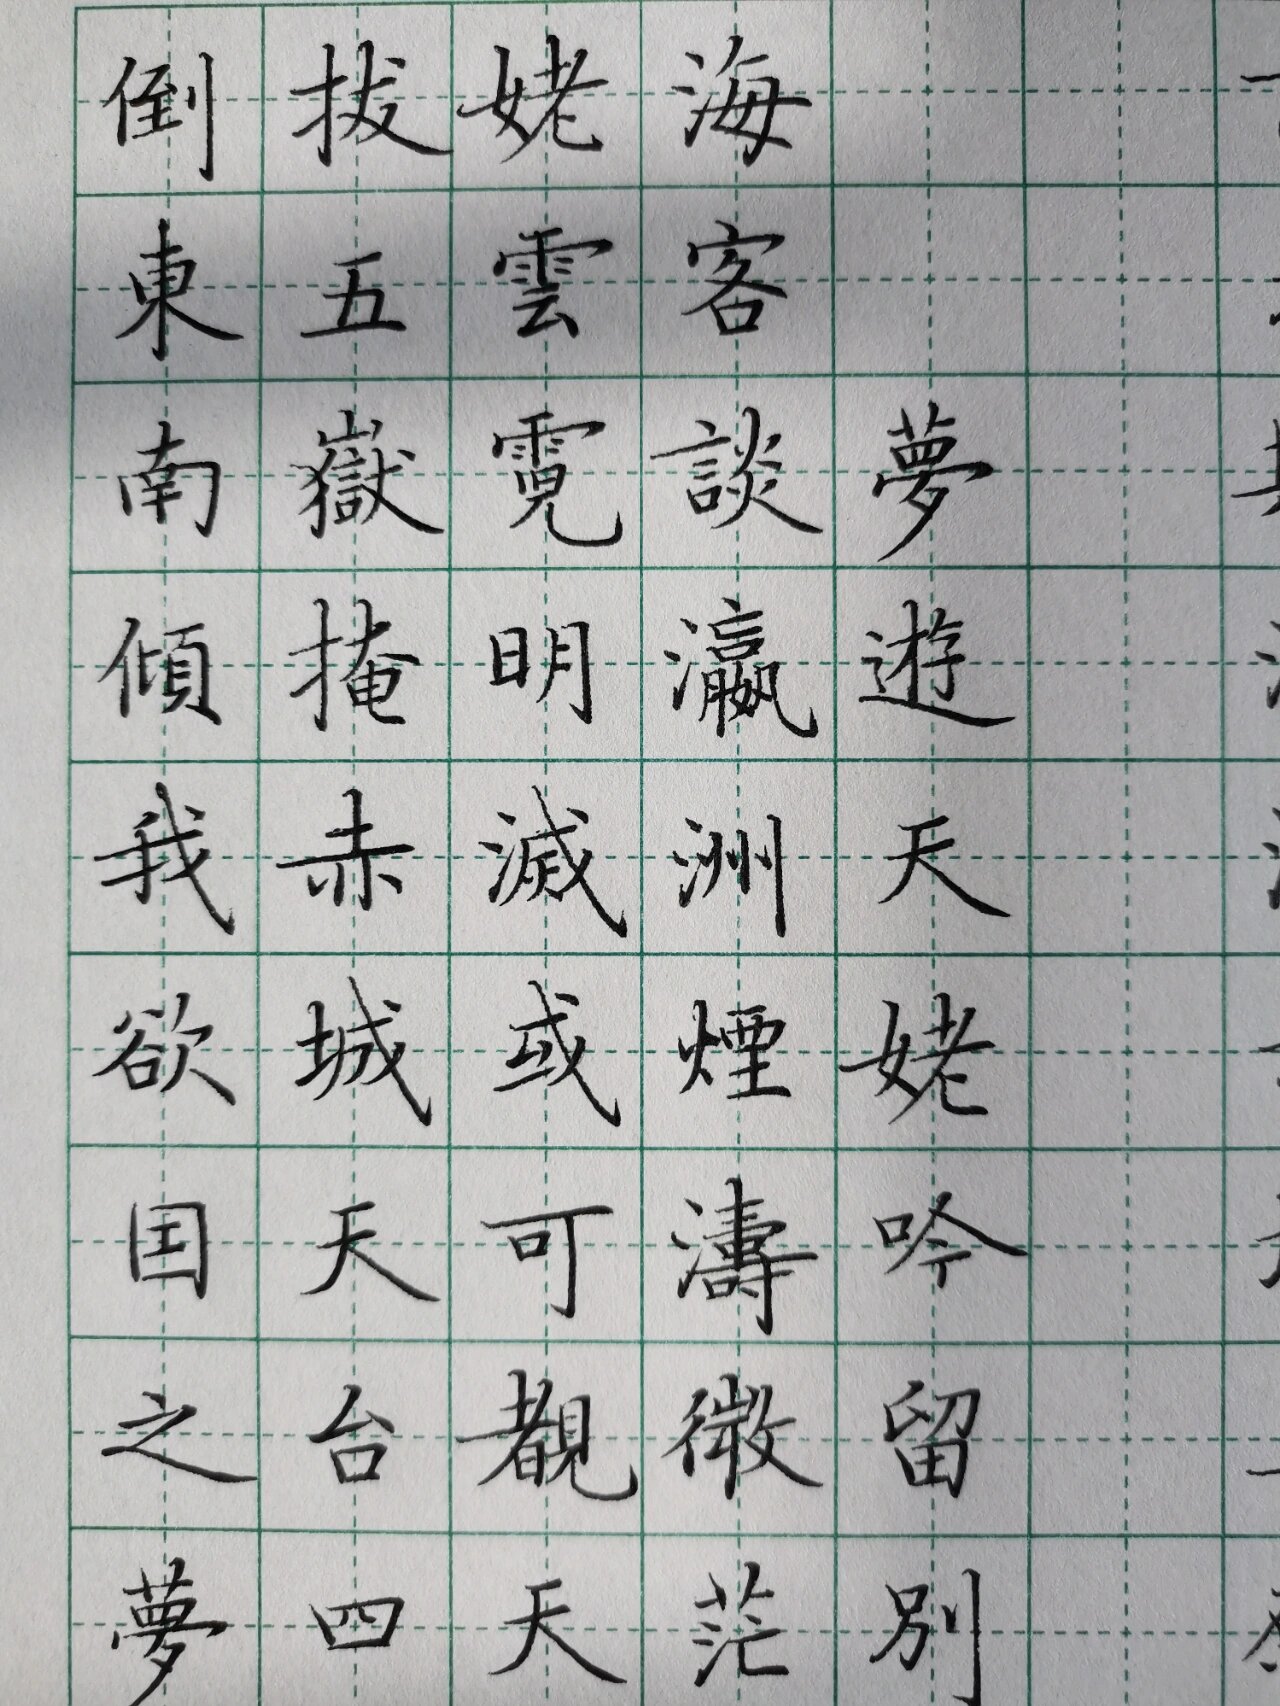 夢遊天姥吟留別
海客談瀛洲煙濤微茫
姥雲霓明滅或可覩天
拔五嶽掩赤城天台四
倒東南傾我欲国之夢